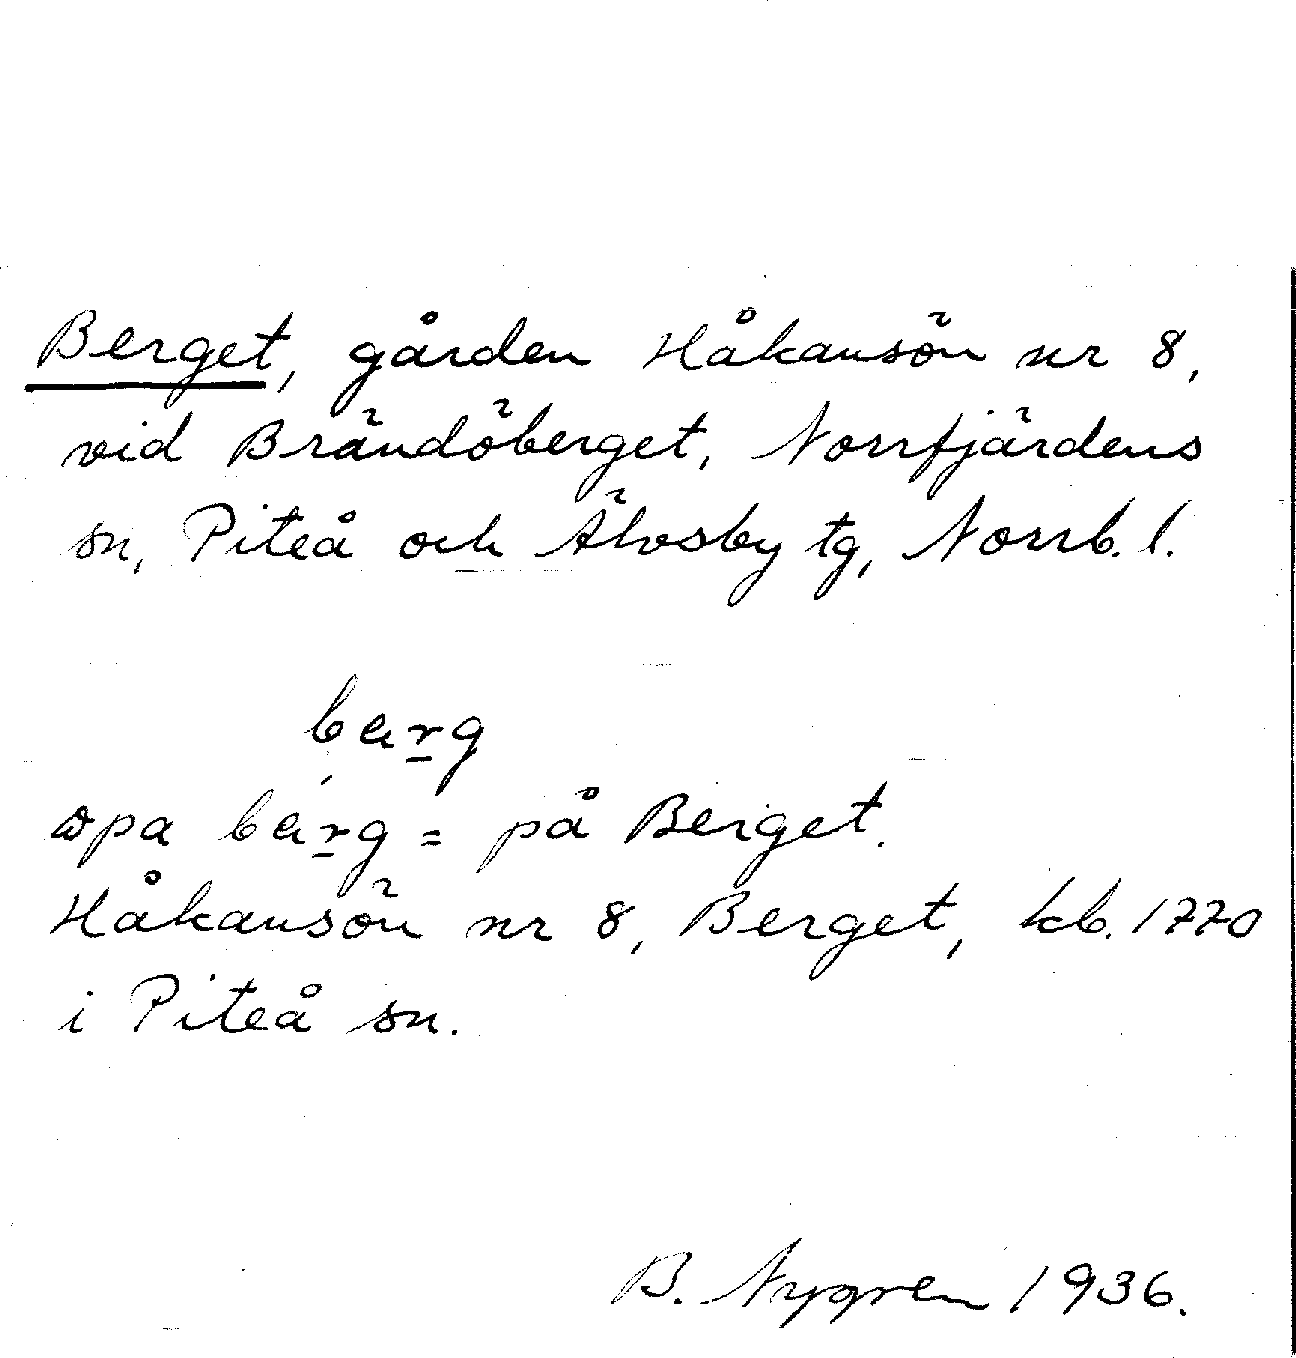 Berget, gården Håkansön nr 8,
vid Brändöberget, Norrfjärdens
sn, Piteå och Älvsby tg, Norrb. l.
barg
opa barg = på Berget.
Håkansön nr 8, Berget, kb. 1770
i Piteå sn.
B. Nygren 1936.